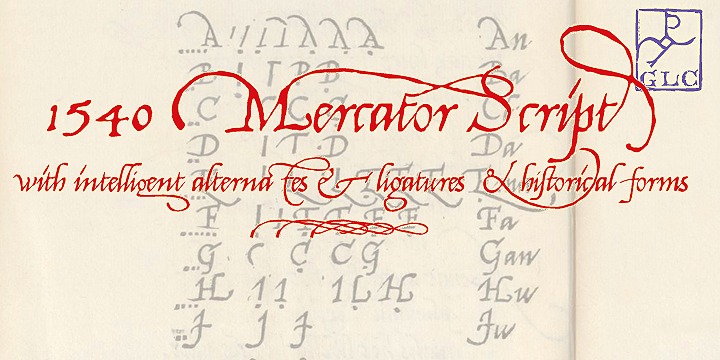 GLC
1540 Mercator Script
with intelligent alternates & ligatures & historical forms
A A A A A An
B I I P B Ba
C C
D I T D Da
F Fa
G C C G Gaw
H I I I L H Hw
J J J Jw